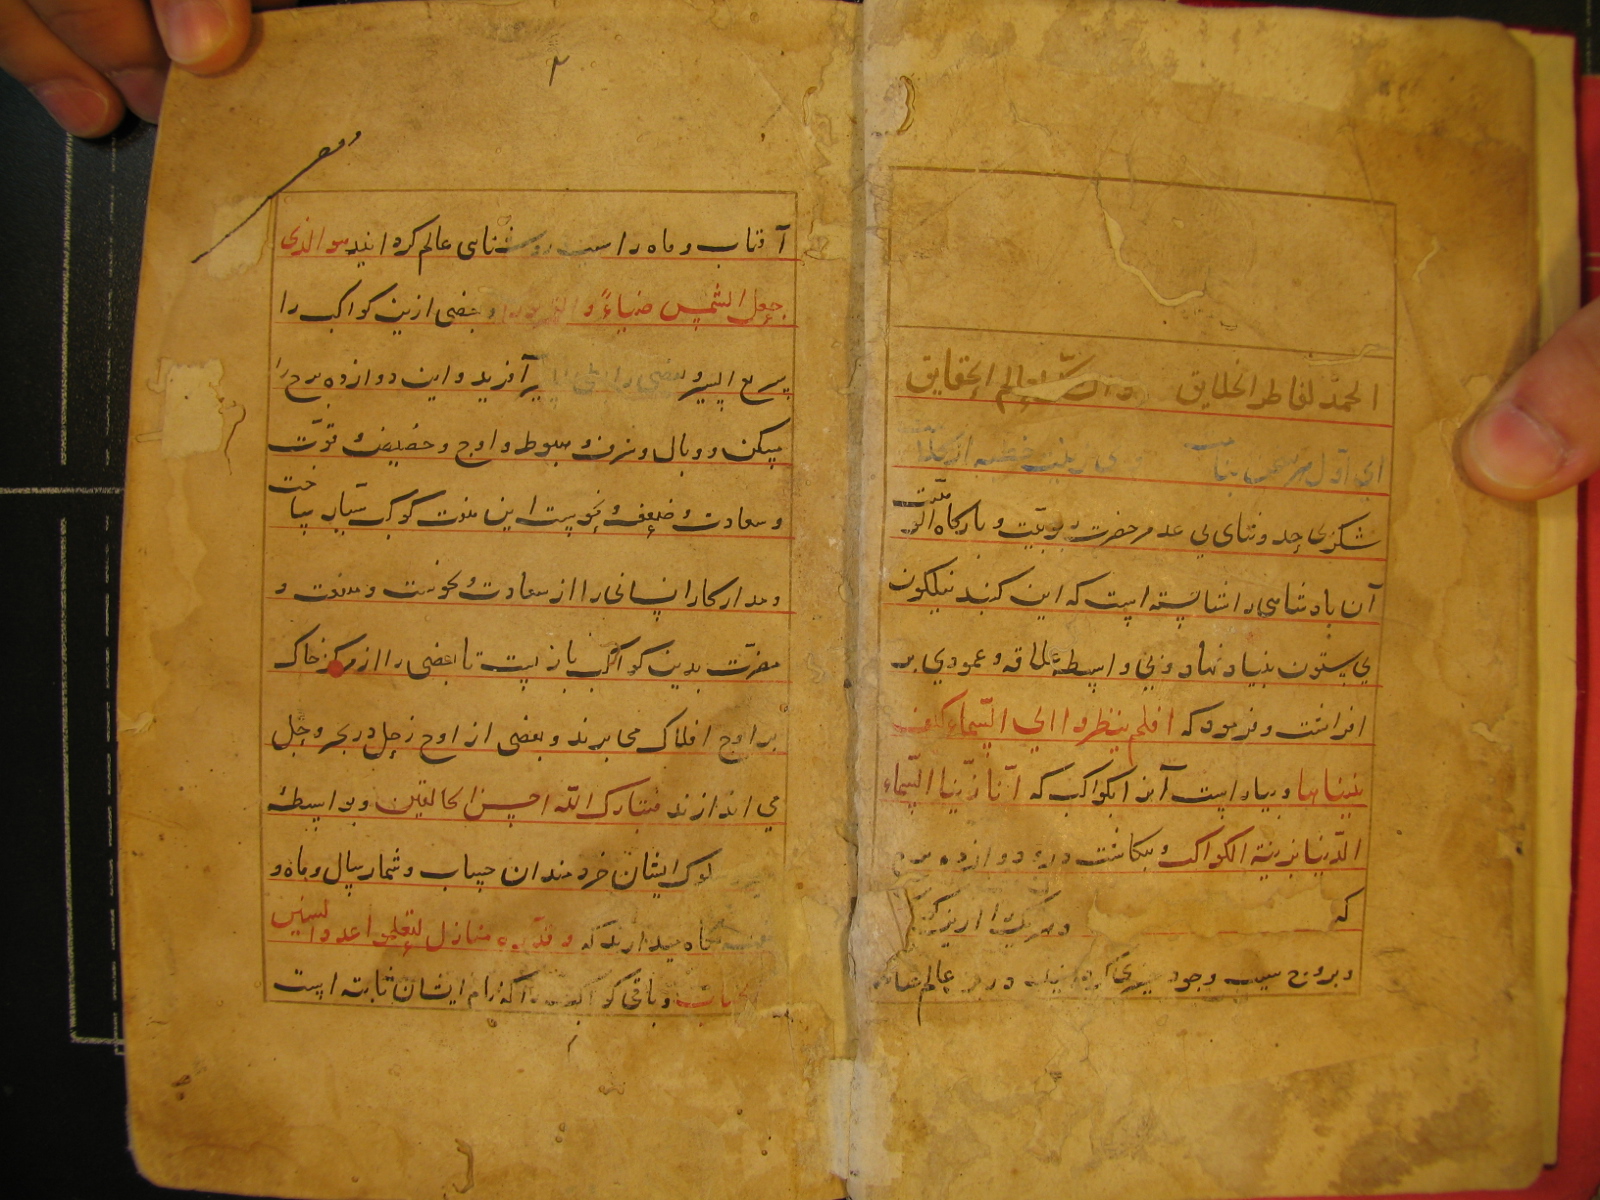 الحمد لفاطر الخلایق لعالم الحقایق
ای اول هر
شکر بی حد و ثنای بی عد مر حضرت ربوبیت و بارگاه الوهیت
آن پادشاهی را شایسته است که این کنبد نیلکون
بی ستون بنیاد نهاد و بی واسطهٔ علاقه و عمودی بر
افراشت و فرمود که افلم ینظروا الی السماء کیف
بنیناها و بیاراست آنرا بکواکب که انا زینا السماء
الدنیا بزینة الکواکب و بنکاشت درو دوازده برج
که و هر یک را ازین
و بروج سبب وجود در عالم
آفتاب و ماه را سبب روشنایی عالم کردانید هو الذی
جعل الشمس ضیاءً و القمر نورا و بعضی ازین کواکب را
سریع السیر و بعضی را بطی السیر آفرید و این دوازده برج را
مسکن و وبال و شرف و هبوط و اوج و حضیض و قوت
و سعادت و ضعف و نحوست این هفت کوکب سیاره ساخت
و مدار کار انسانی را از سعادت و نحوست و منفعت و
مضرت بدین کواکب باز بست تا بعضی را از مرکز خاک
بر اوج افلاک می برند و بعضی از اوج زحل در بحر وحل
می اندازند فتبارک الله احسن الخالقین و بواسطهٔ
ایشان خردمندان حساب و شمار سال و ماه و
نگاه میدارند که و قدره منازل لتعلموا عدد السنین
و باقی کواکب را که نام ایشان ثابته است